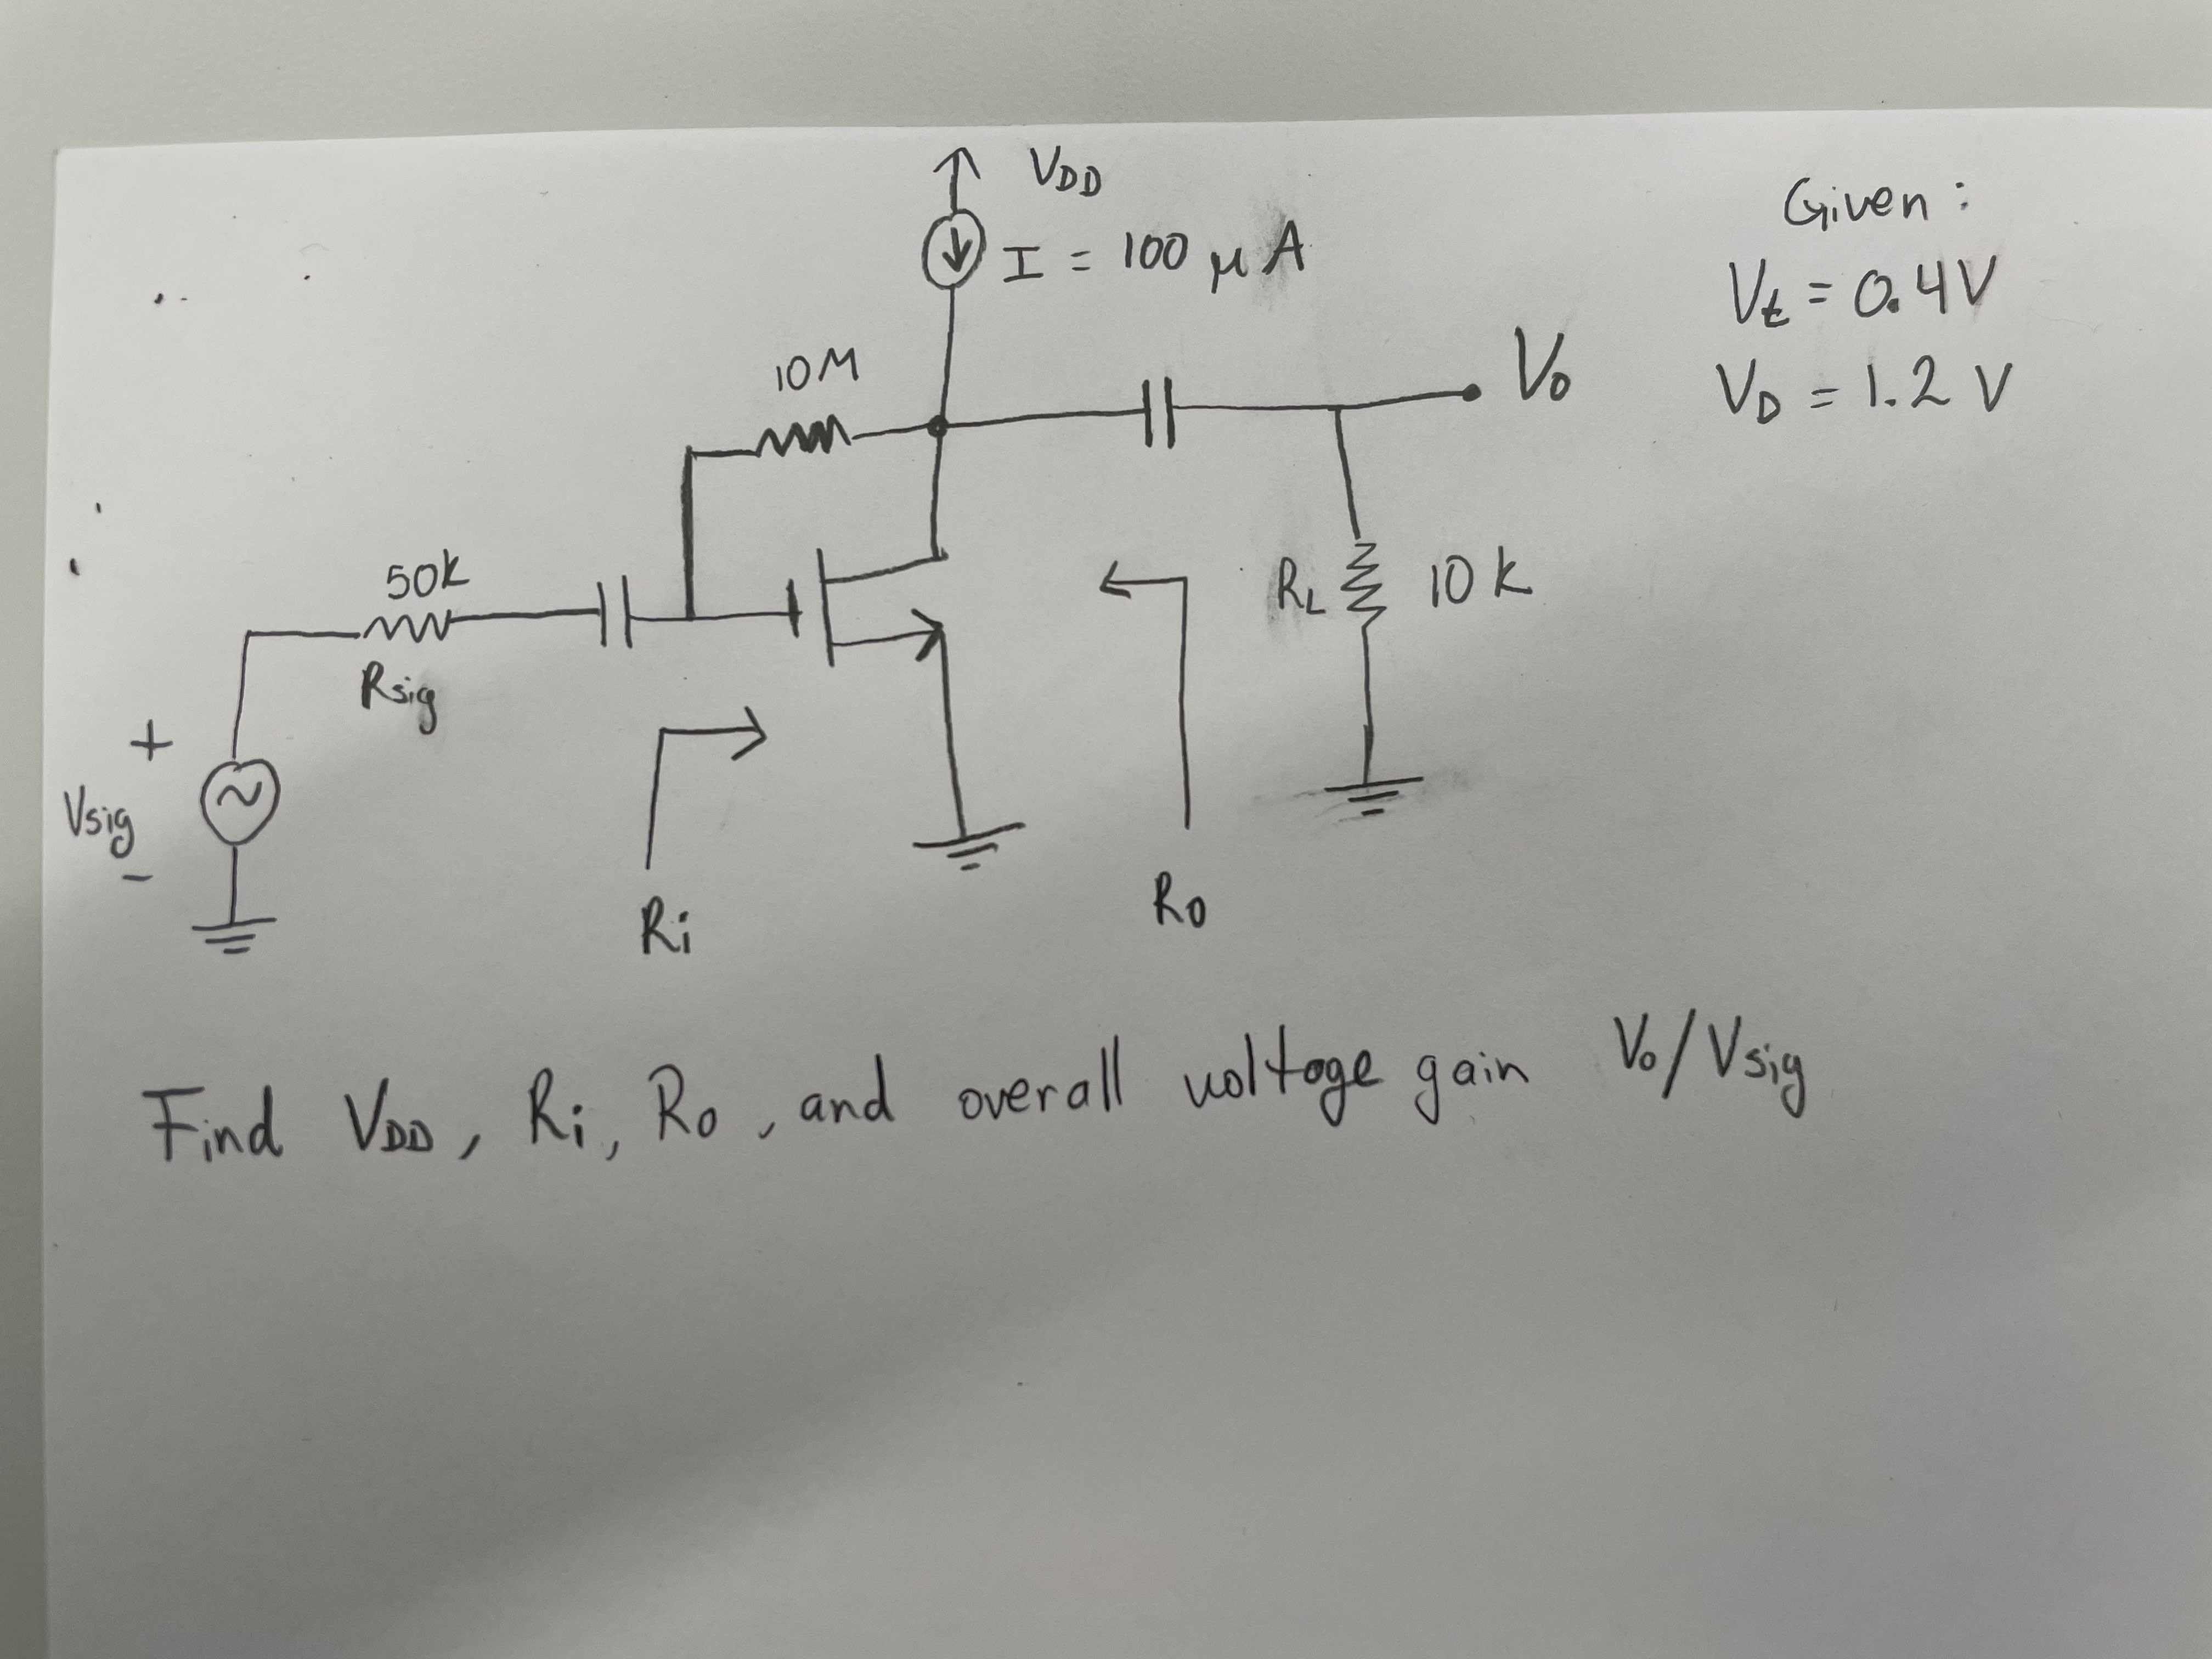 VDD
I = 100 μA
Given :
Vt = 0.4V
VD = 1.2 V
10M
Vo
50k
Rsig
RL 10k
+
Vsig
−
Ri
Ro
Find VDD, Ri, Ro, and overall voltage gain Vo/Vsig